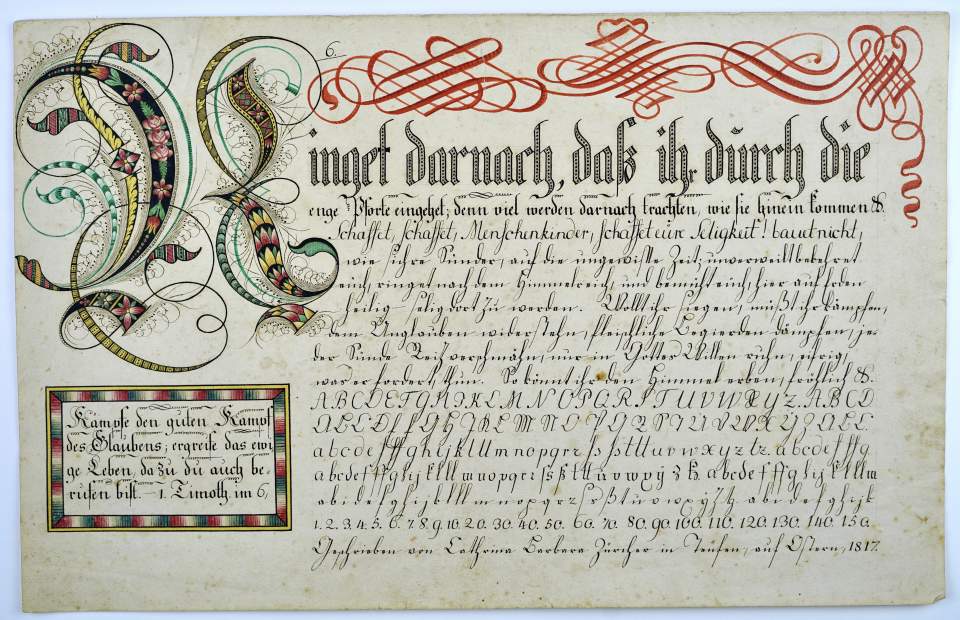 6.
Ringet darnach, daß ihr durch die
enge Pforte eingehet; denn viel werden darnach trachten, wie sie hinein kommen &.
Schaffet, schaffet, Menschenkinder, schaffet eure Seligkeit! bauet nicht,
wie sichre Sünder, auf die ungewisse Zeit; unverweilt bekehret
euch, ringet nach dem Himmelreich, und bemüht euch, hier auf Erden
heilig, selig dort zu werden. Wollt ihr siegen, müßt ihr kämpfen,
dem Unglauben widerstehn, fleischliche Begierden dämpfen, je-
der Sünde Reiz verschmähn, nur in Gottes Willen ruhn, eifrig,
was er fordert, thun. So könnt ihr den Himmel erben, fröhlich &.
A B C D E F G H I K L M N O P Q R S T U V W X Y Z. A B C D
a b c d e f f g h i j k l l m n o p q r z s ß s t t u v w x y z tz. a b c d e f f g
a b c d e f f g h i j k l l m n o p q r z s ß t u v w x y z a b c d e f f g h i j k l l m
a b c d e f g h i j k l l m n o p q r z s ß t u v w x y z a b c d e f g h i j k
1. 2. 3. 4. 5. 6. 7. 8. 9. 10. 20. 30. 40. 50. 60. 70. 80. 90. 100. 110. 120. 130. 140. 150.
Geschrieben von Cathrina Barbara Zürcher in Teufen, auf Ostern, 1817.
Kämpfe den guten Kampf
des Glaubens; ergreife das ewi
ge Leben, da zu du auch be-
rufen bist. — 1. Timoth. im 6.